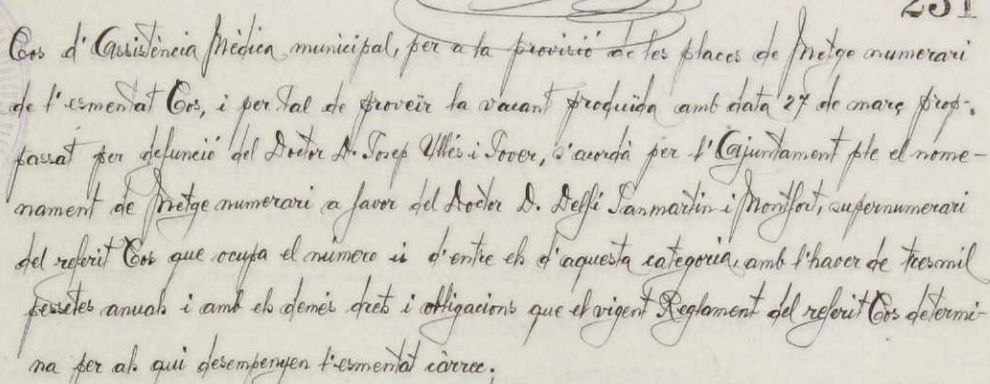 231
Cos d'Assistència Mèdica municipal, per a la provisió de les places de Metge numerari
de l'esmentat Cos, i per tal de proveïr la vacant produïda amb data 27 de març prop-
passat per defunció del Doctor D. Josep Ullés i Jover, s'acordà per l'Ajuntament ple el nome-
nament de Metge numerari a favor del Doctor D. Delfi Sanmartin i Montfort, supernumerari
del referit Cos que ocupa el número u d'entre els d'aquesta categoria, amb l'haver de tres mil
pessetes anuals i amb els demés drets i obligacions que el vigent Reglament del referit Cos determi-
na per als qui desempenyen l'esmentat càrrec.